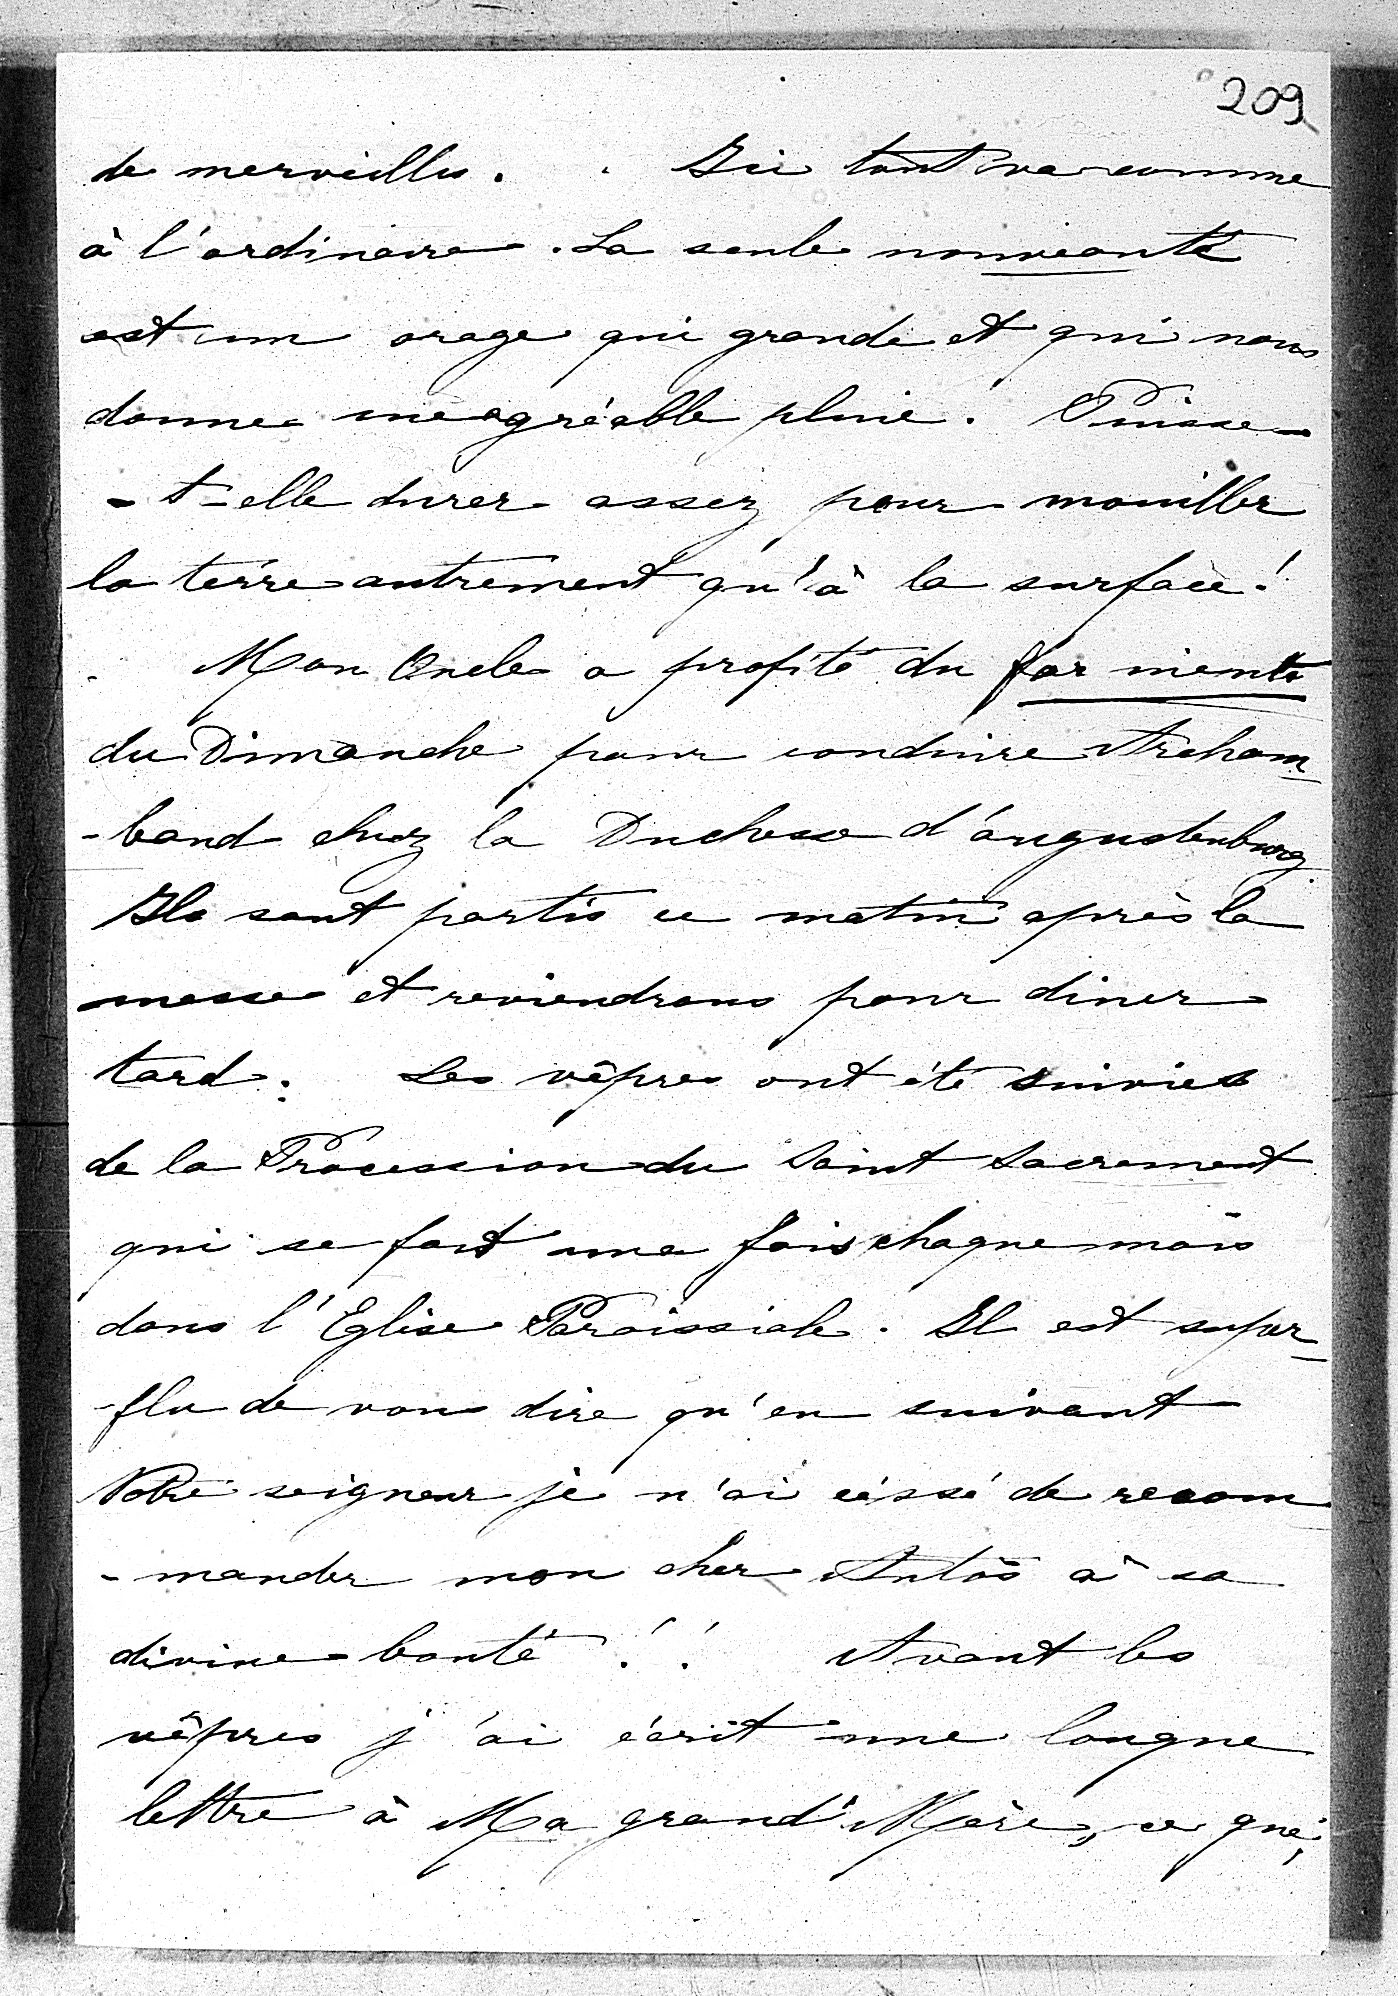 209
de merveilles. Ici tout va comme
à l'ordinaire. La seule nouveauté
est un orage qui gronde et qui nous
donne une agréable pluie. Puisse-
-t-elle durer assez pour mouiller
la terre autrement qu'à la surface!
Mon Oncle a profité du far niente
du Dimanche pour conduire Archam-
-baud chez la Duchesse d'Augustenburg
Ils sont partis ce matin après la
messe et reviendrons pour diner
tard. Les vêpres ont été suivies
de la Procession du Saint Sacrement
qui se fait une fois chaque mois
dans l'Eglise Paroissiale. Il est super-
-flu de vous dire qu'en suivant
Notre seigneur je n'ai cessé de recom
-mander mon cher Antós à sa
divine bonté!! Avant les
vêpres j'ai écrit une longue
lettre à Ma grand'Mère, ce que,